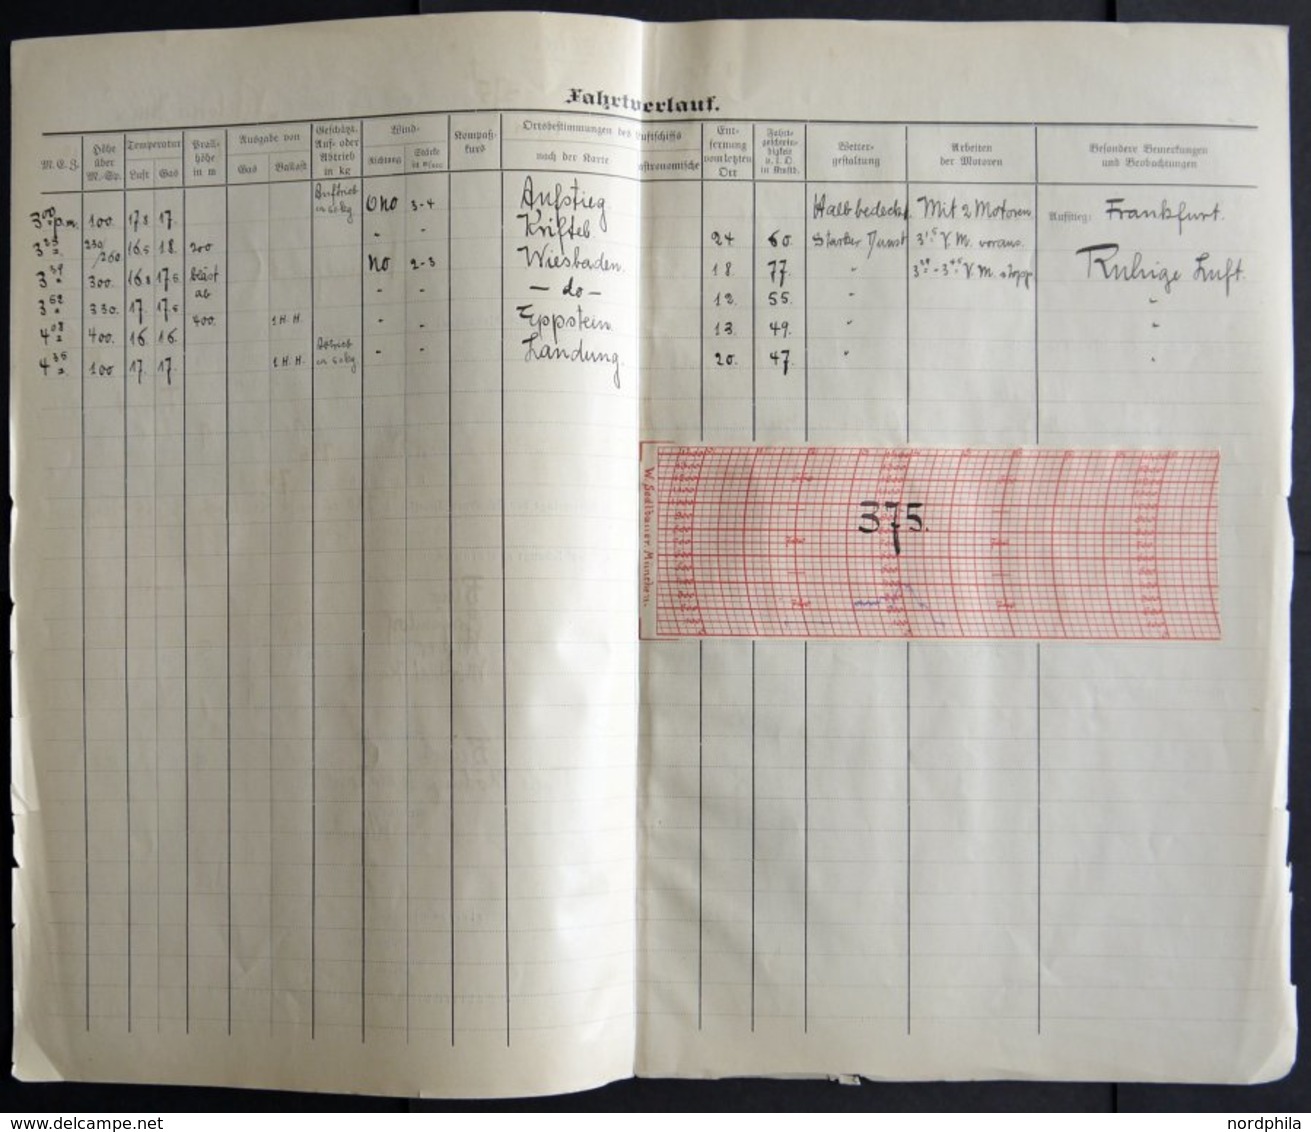 Fahrtverlauf.
M.E.Z. Höhe über M.-Sp. Temperatur Luft Gas Prallhöhe in m Ausgabe von Gas Ballast Geschätzt. Auf- oder Abtrieb in kg Wind- Richtung Stärke in m/sec. Kompaßkurs Ortsbestimmungen des Luftschiffs nach der Karte astronomische Entfernung vom letzten Ort Fahrtgeschwindigkeit in Mstd. Wettergestaltung Arbeiten der Motoren Besondere Bemerkungen und Beobachtungen
3 00 p.m. 100. 17.8 17. Auftrieb kg ONO 3-4 Aufstieg. Halb bedeckt. Mit 2 Motoren. Aufstieg: Frankfurt.
3 250/260 16.5 18. 200 " " Kriftel. 24 60. Starker Dunst 3 15 V.M. voraus.
3 39 " 300. 16.8 17.5 bläst ab NO 2-3 Wiesbaden. 18. 77. " 3 39 - 3 45 V.M. stopp Ruhige Luft.
3 52 " 330. 17. 17.5 " " — do — 12. 55. " "
4 08 " 400. 16. 16. 400. 1 H.H. " " Eppstein. 13. 49. " "
4 35 " 100 17. 17. 1 H.H. Abtrieb kg " " Landung. 20. 47. " "
375.
W. Sedlbauer, München.
www.delcampe.net
nordphila